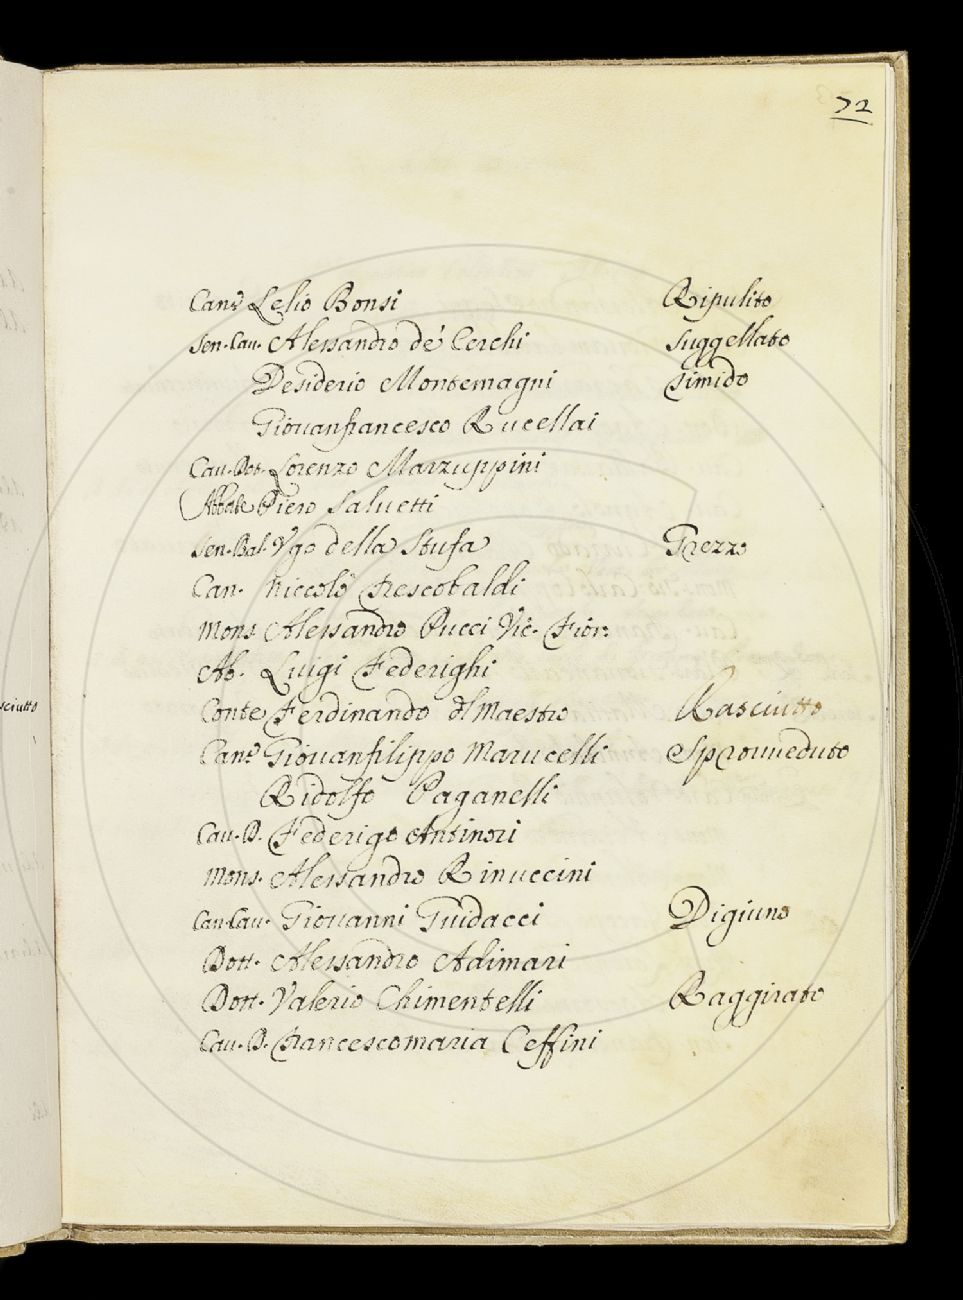 72
Can.co Lelio Bonsi Ripulito
Sen. Cau. Alessandro de' Cerchi Suggellato
Desiderio Montemagni Timido
Giouanfrancesco Rucellai
Cau. Dot. Lorenzo Marzuppini
Abbate Piero Saluetti
Sen. Bal. Vgo della Stufa Grezzo
Can. Niccolò Frescobaldi
Mons. Alessandro Pucci Vic. Fior:
Ab. Luigi Federighi
Conte Ferdinando dl Maestro Rasciutto
sciutto
Can.co Giouanfilippo Marucelli Sprouueduto
Ridolfo Paganelli
Cau. D. Federigo Antinori
Mons. Alessandro Rinuccini
Can. Cau. Giouanni Guidacci Digiuno
Dott. Alessandro Adimari
Dott. Valerio Chimentelli Raggirato
Cau. D. Francescomaria Ceffini